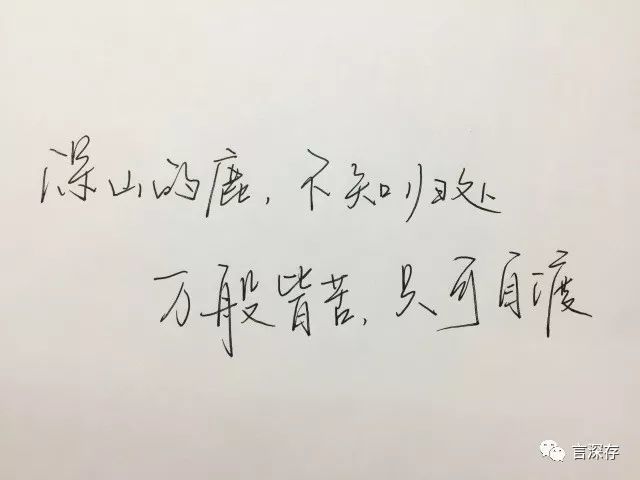 深山的鹿，不知归处
万般皆苦，只可自渡
言深存